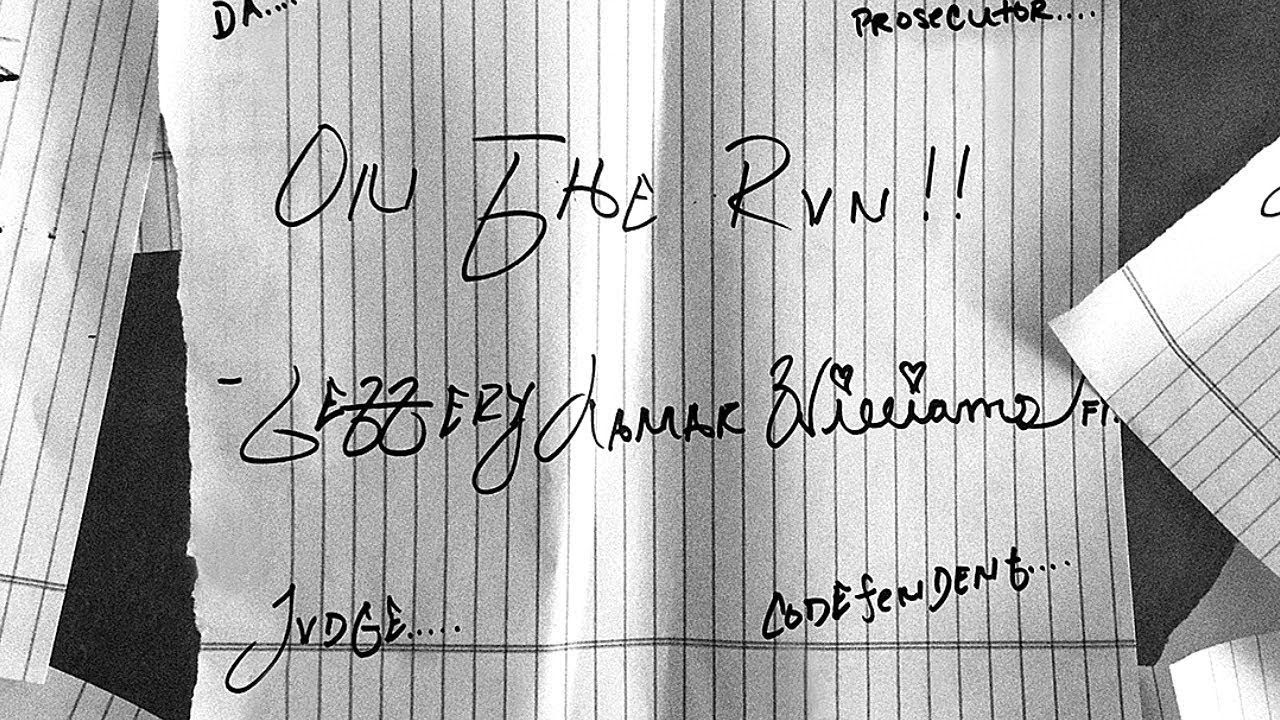 DA.... PROSECUTOR....
ON THE RVN!!
- Lamar Williams
JVDGE..... CODEfENDENt....